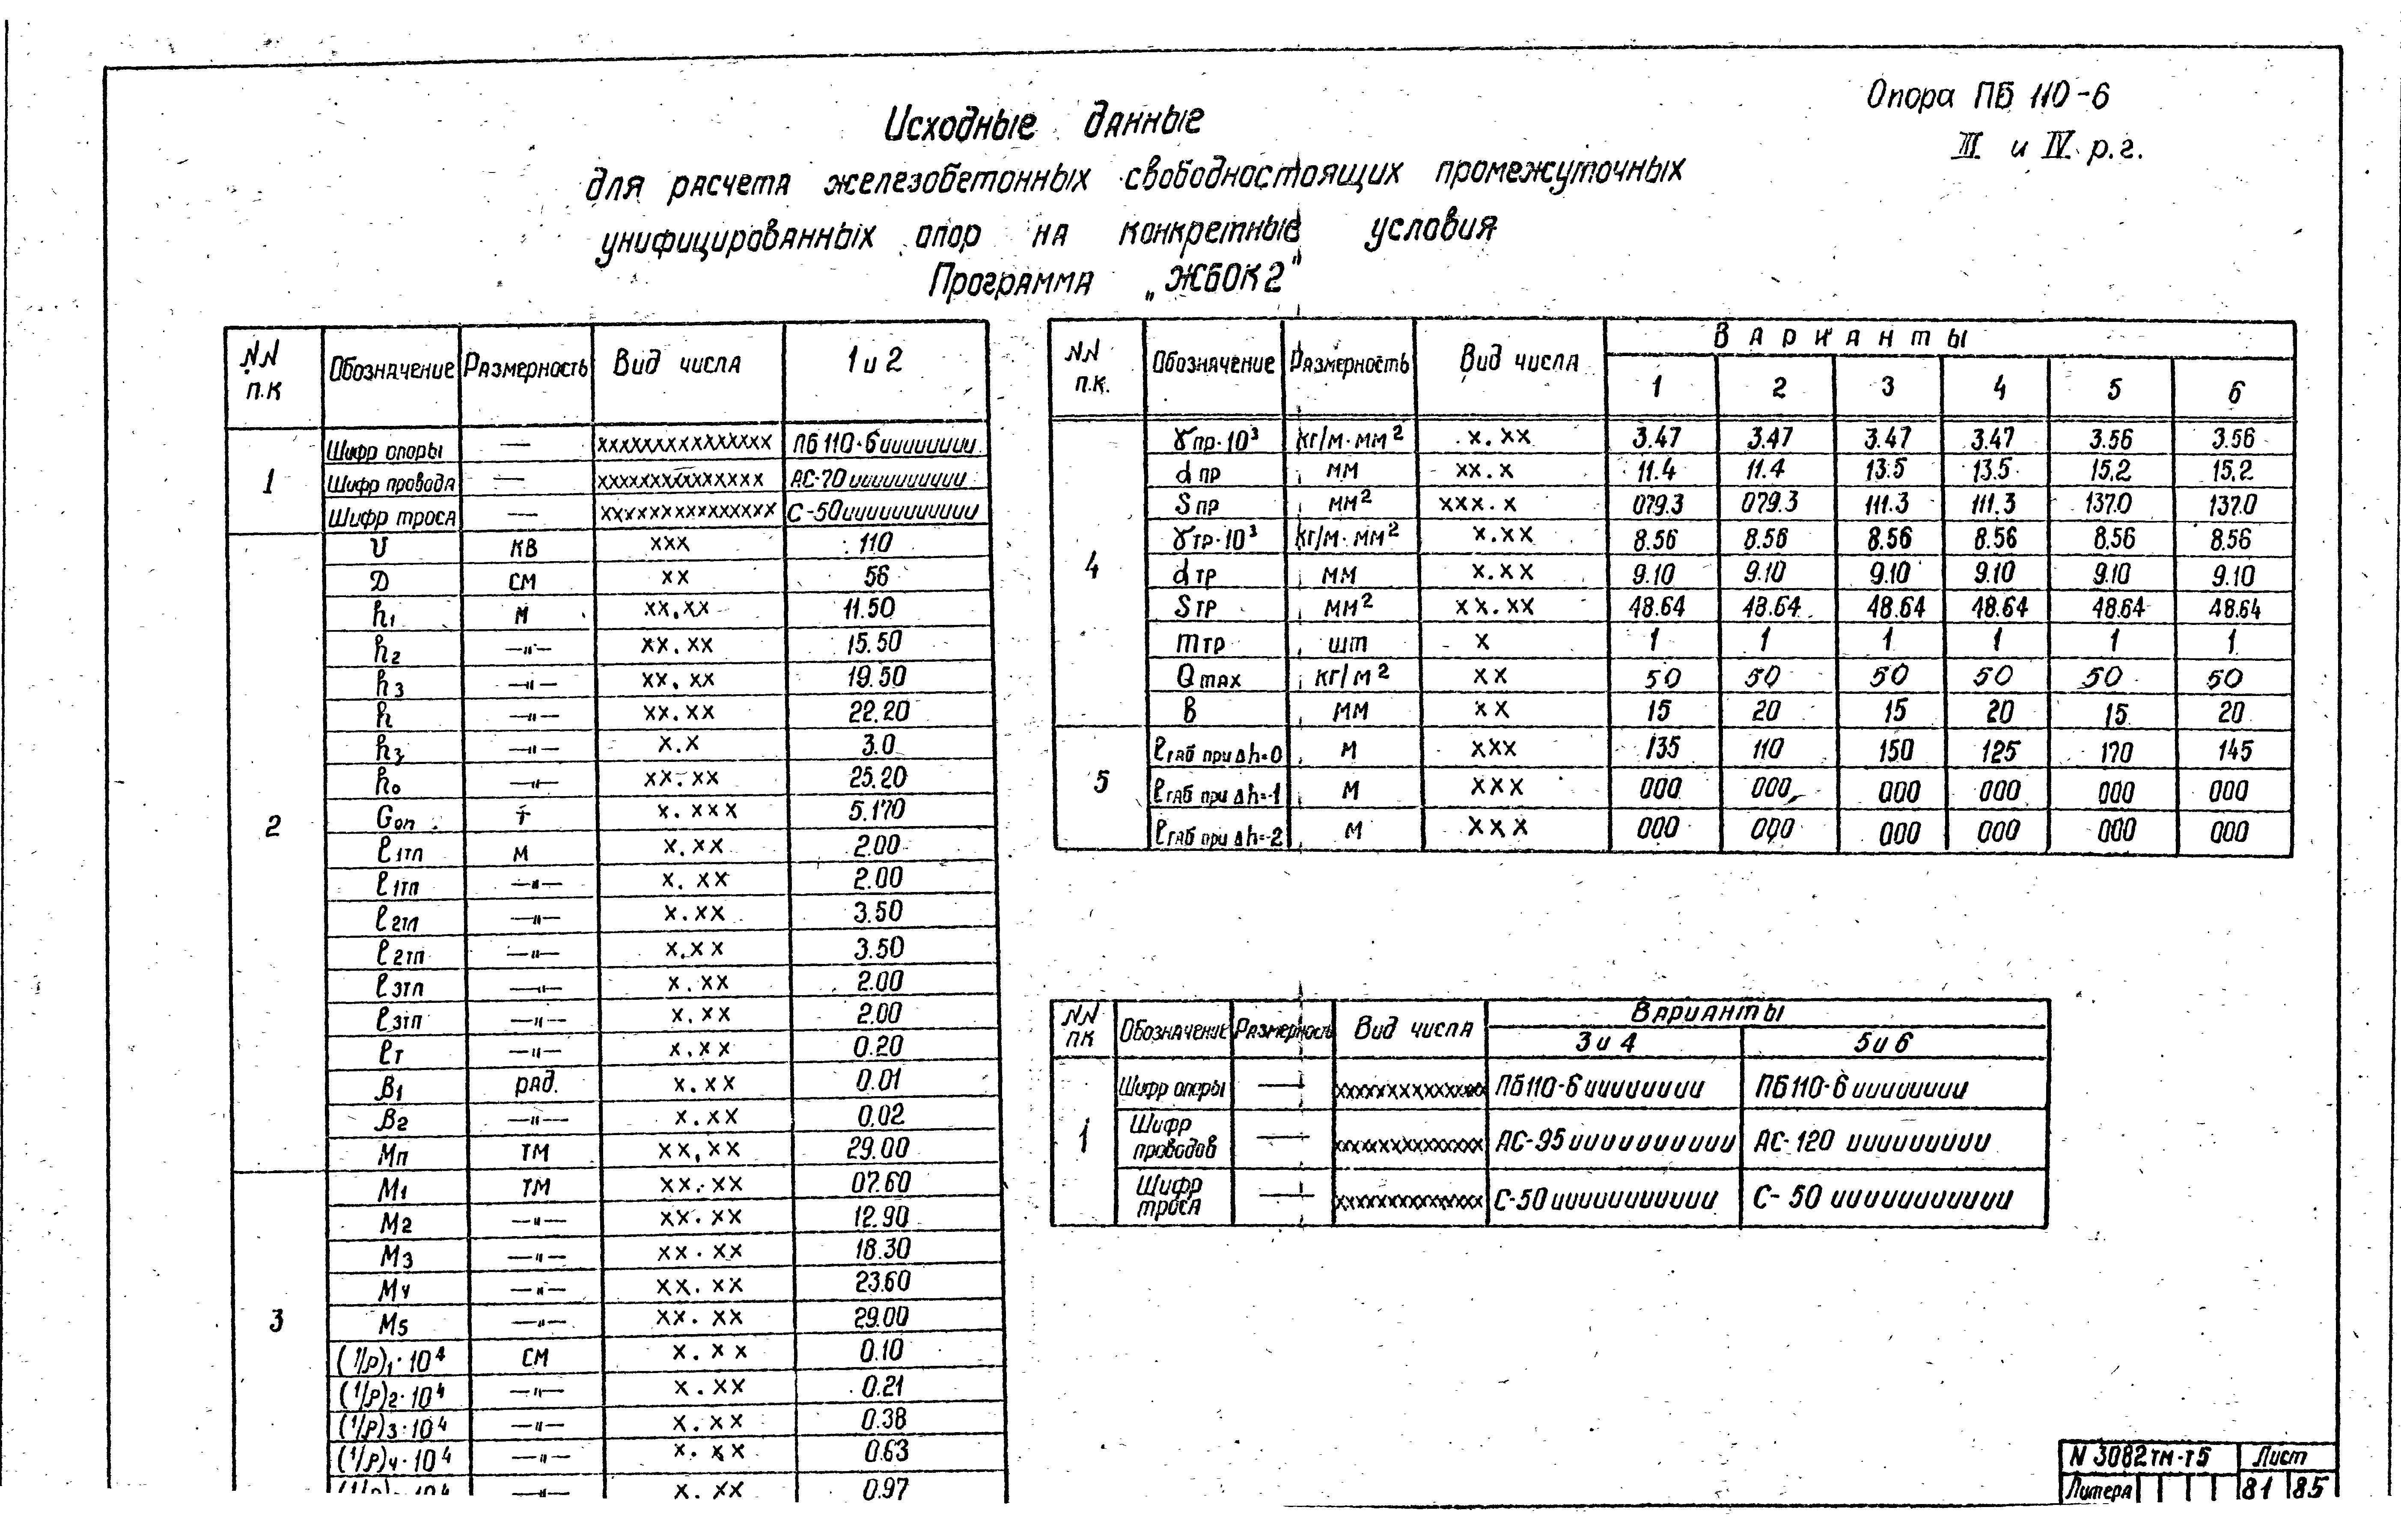 Опора ПБ 110-6
III и IV р.г.
Исходные данные
для расчета железобетонных свободностоящих промежуточных
унифицированных опор на конкретные условия
Программа „ЖБОК2"
NN п.к Обозначение Размерность Вид числа 1 и 2
1 Шифр опоры — xxxxxxxxxxxxxxx ПБ 110-6иииииииии
Шифр провода — xxxxxxxxxxxxxx АС-70ииииииииии
Шифр троса — xxxxxxxxxxxxxxx С-50иииииииииии
2 U КВ xxx 110
Д СМ xx 56
h1 М xx.xx 11.50
h2 —"— xx.xx 15.50
h3 —"— xx.xx 19.50
h —"— xx.xx 22.20
hз —"— x.x 3.0
h0 —"— xx.xx 25.20
Gоп т x.xxx 5.170
ℓ1тл М x.xx 2.00
ℓ1тп —"— x.xx 2.00
ℓ2тл —"— x.xx 3.50
ℓ2тп —"— x.xx 3.50
ℓ3тл —"— x.xx 2.00
ℓ3тп —"— x.xx 2.00
ℓт —"— x.xx 0.20
β1 рад. x.xx 0.01
β2 —"— x.xx 0.02
Мп ТМ xx.xx 29.00
3 М1 ТМ xx.xx 07.60
М2 —"— xx.xx 12.90
М3 —"— xx.xx 18.30
М4 —"— xx.xx 23.60
М5 —"— xx.xx 29.00
(1/ρ)1·10⁴ СМ x.xx 0.10
(1/ρ)2·10⁴ —"— x.xx 0.21
(1/ρ)3·10⁴ —"— x.xx 0.38
(1/ρ)4·10⁴ —"— x.xx 0.63
—"— x.xx 0.97
NN п.к. Обозначение Размерность Вид числа Варианты
1 2 3 4 5 6
4 γпр·10³ кг/м·мм² x.xx 3.47 3.47 3.47 3.47 3.56 3.56
dпр мм xx.x 11.4 11.4 13.5 13.5 15.2 15.2
Sпр мм² xxx.x 079.3 079.3 111.3 111.3 137.0 137.0
γтр·10³ кг/м·мм² x.xx 8.56 8.56 8.56 8.56 8.56 8.56
dтр мм x.xx 9.10 9.10 9.10 9.10 9.10 9.10
Sтр мм² xx.xx 48.64 48.64 48.64 48.64 48.64 48.64
mтр шт x 1 1 1 1 1 1
Qmax кг/м² xx 50 50 50 50 50 50
в мм xx 15 20 15 20 15 20
5 ℓгаб при Δh=0 М xxx 135 110 150 125 170 145
ℓгаб при Δh=-1 М xxx 000 000 000 000 000 000
ℓгаб при Δh=-2 М xxx 000 000 000 000 000 000
NN пк Обозначение Размерность Вид числа Варианты
3 и 4 5 и 6
1 Шифр опоры — xxxxxxxxxxxxxx ПБ110-6иииииииии ПБ110-6ииииииии
Шифр проводов — xxxxxxxxxxxxxx АС-95ииииииииии АС-120 иииииииии
Шифр троса — xxxxxxxxxxxxxx С-50иииииииииии С-50 иииииииииии
N 3082тм-т5 Лист
Литера 81 85